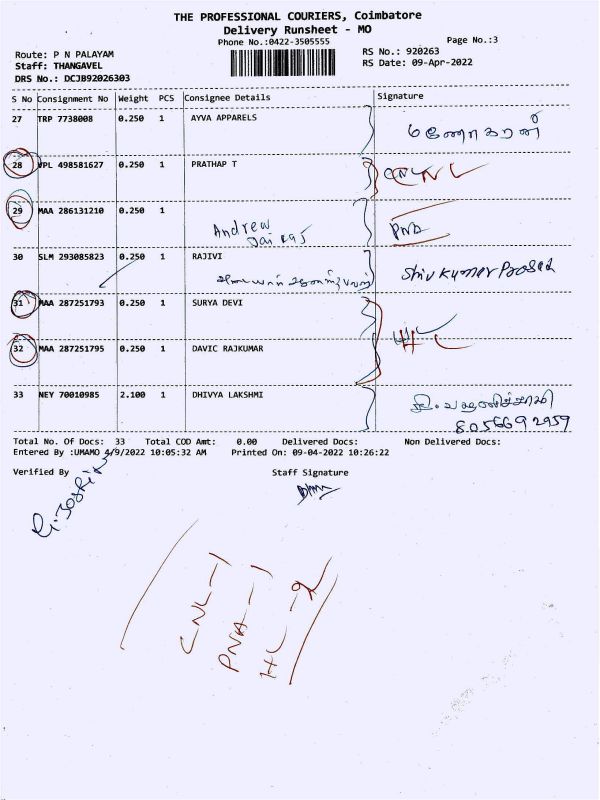 THE PROFESSIONAL COURIERS, Coimbatore
Delivery Runsheet - MO
Phone No.:0422-3505555
Page No.:3
Route: P N PALAYAM
RS No.: 920263
Staff: THANGAVEL
RS Date: 09-Apr-2022
DRS No.: DCJB92026303
S No Consignment No Weight PCS Consignee Details Signature
27 TRP 7738008 0.250 1 AYVA APPARELS
28 VPL 498581627 0.250 1 PRATHAP T CNL
29 MAA 286131210 0.250 1 Andrew PNA
30 SLM 293085823 0.250 1 RAJIVI Shiv Kumar Prasad
31 MAA 287251793 0.250 1 SURYA DEVI
HC
32 MAA 287251795 0.250 1 DAVIC RAJKUMAR
33 NEY 70010985 2.100 1 DHIVYA LAKSHMI
8056692959
Total No. Of Docs: 33 Total COD Amt: 0.00 Delivered Docs: Non Delivered Docs:
Entered By :UMAMO 4/9/2022 10:05:32 AM Printed On: 09-04-2022 10:26:22
Verified By Staff Signature
CNL-1
PNA-1
HC-2